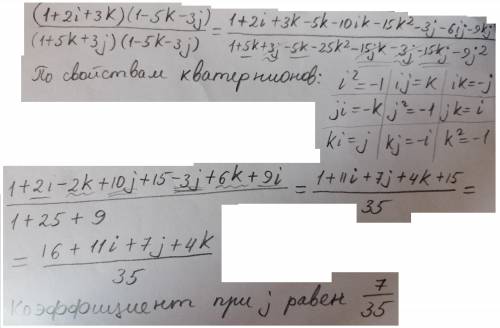 (1+2i+3k)(1-5k-3j) / (1+5k+3j)(1-5k-3j) = 1+2i+3k-5k-10ik-15k²-3j-6ij-9kj / 1+5k+3j-5k-25k²-15jk-3j-15kj-9j²
По свойствам кватернионов:
i²=-1 | ij=k | ik=-j
ji=-k | j²=-1 | jk=i
ki=j | kj=-i | k²=-1
1+2i-2k+10j+15-3j+6k+9i / 1+25+9 = 1+11i+7j+4k+15 / 35 =
= 16+11i+7j+4k / 35
Коэффициент при j равен 7/35